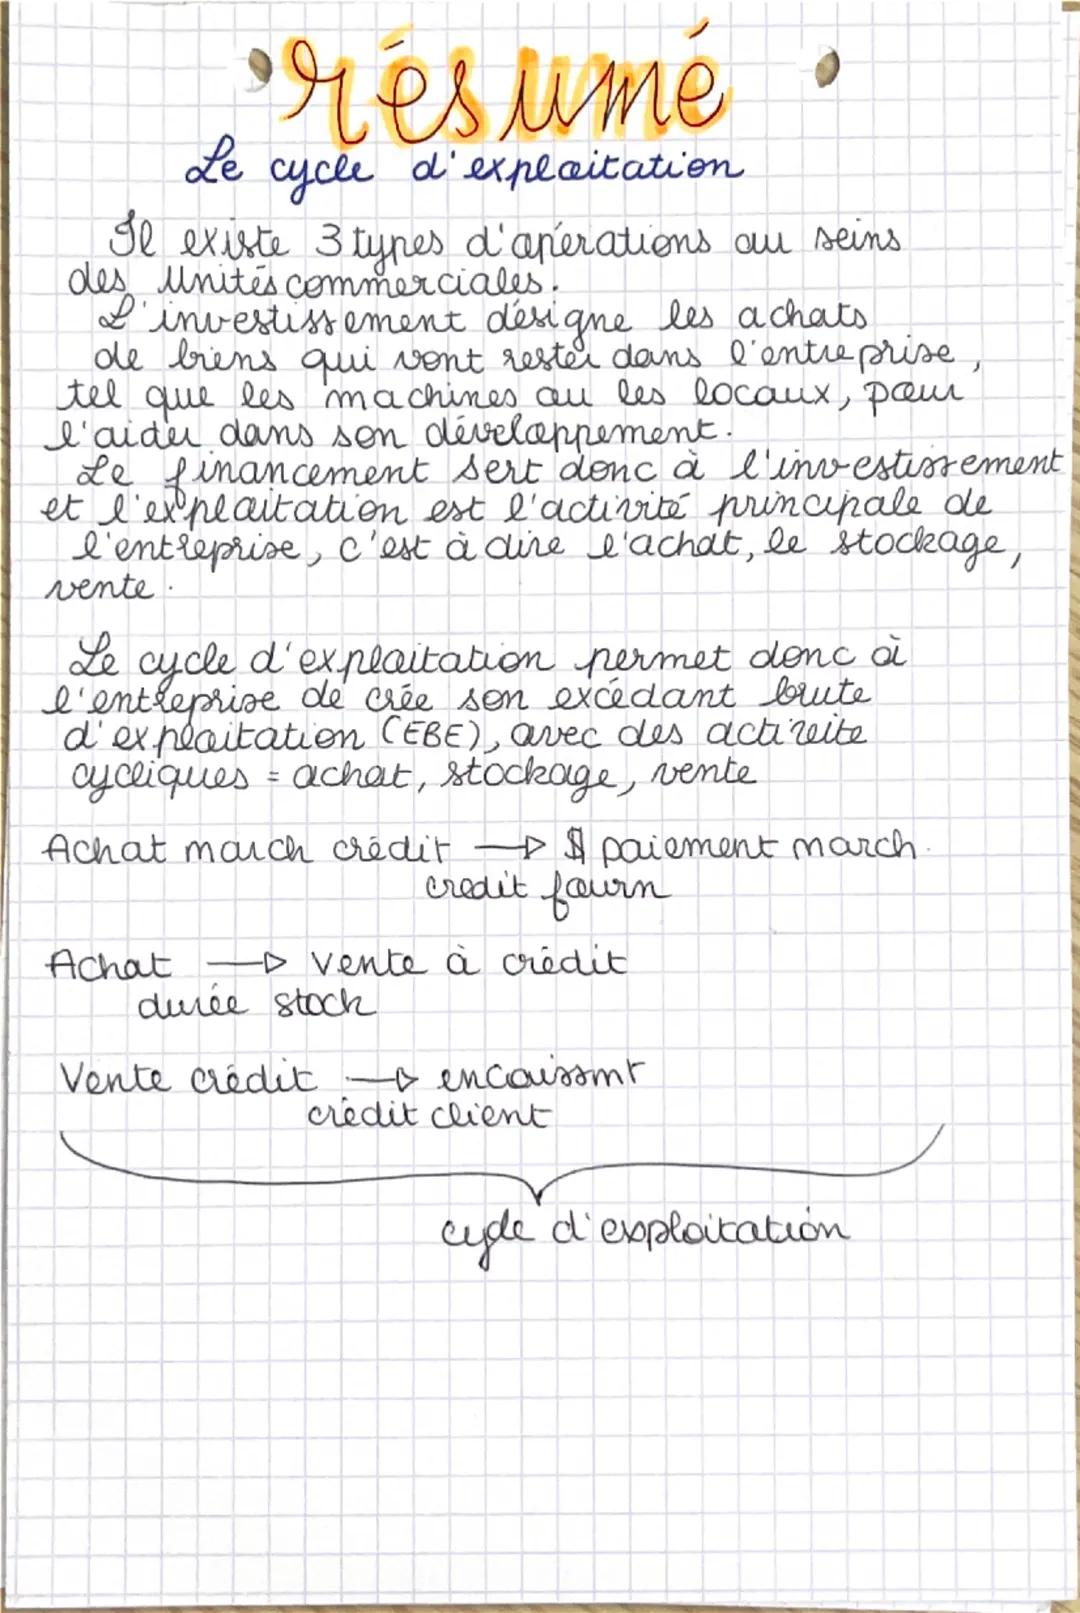 résumé
Le cycle d'exploitation
Il existe 3 types d'opérations au seins
des Unités commerciales.
L'investissement désigne les achats
de biens qui vont rester dans l'entreprise,
tel que les machines ou les locaux, pour
l'aider dans son développement.
Le financement sert donc à l'investissement
et l'exploitation est l'activité principale de
l'entreprise, c'est à dire l'achat, le stockage,
vente.
Le cycle d'exploitation permet donc à
l'entreprise de crée son excédant brute
d'exploitation (EBE), avec des
cycliques = achat, stockage, vente
Achat march crédit → $ paiement march.
credit fourn
Achat → vente à crédit
durée stock
Vente crédit → encaissmt
crédit client
cycle d'exploitation